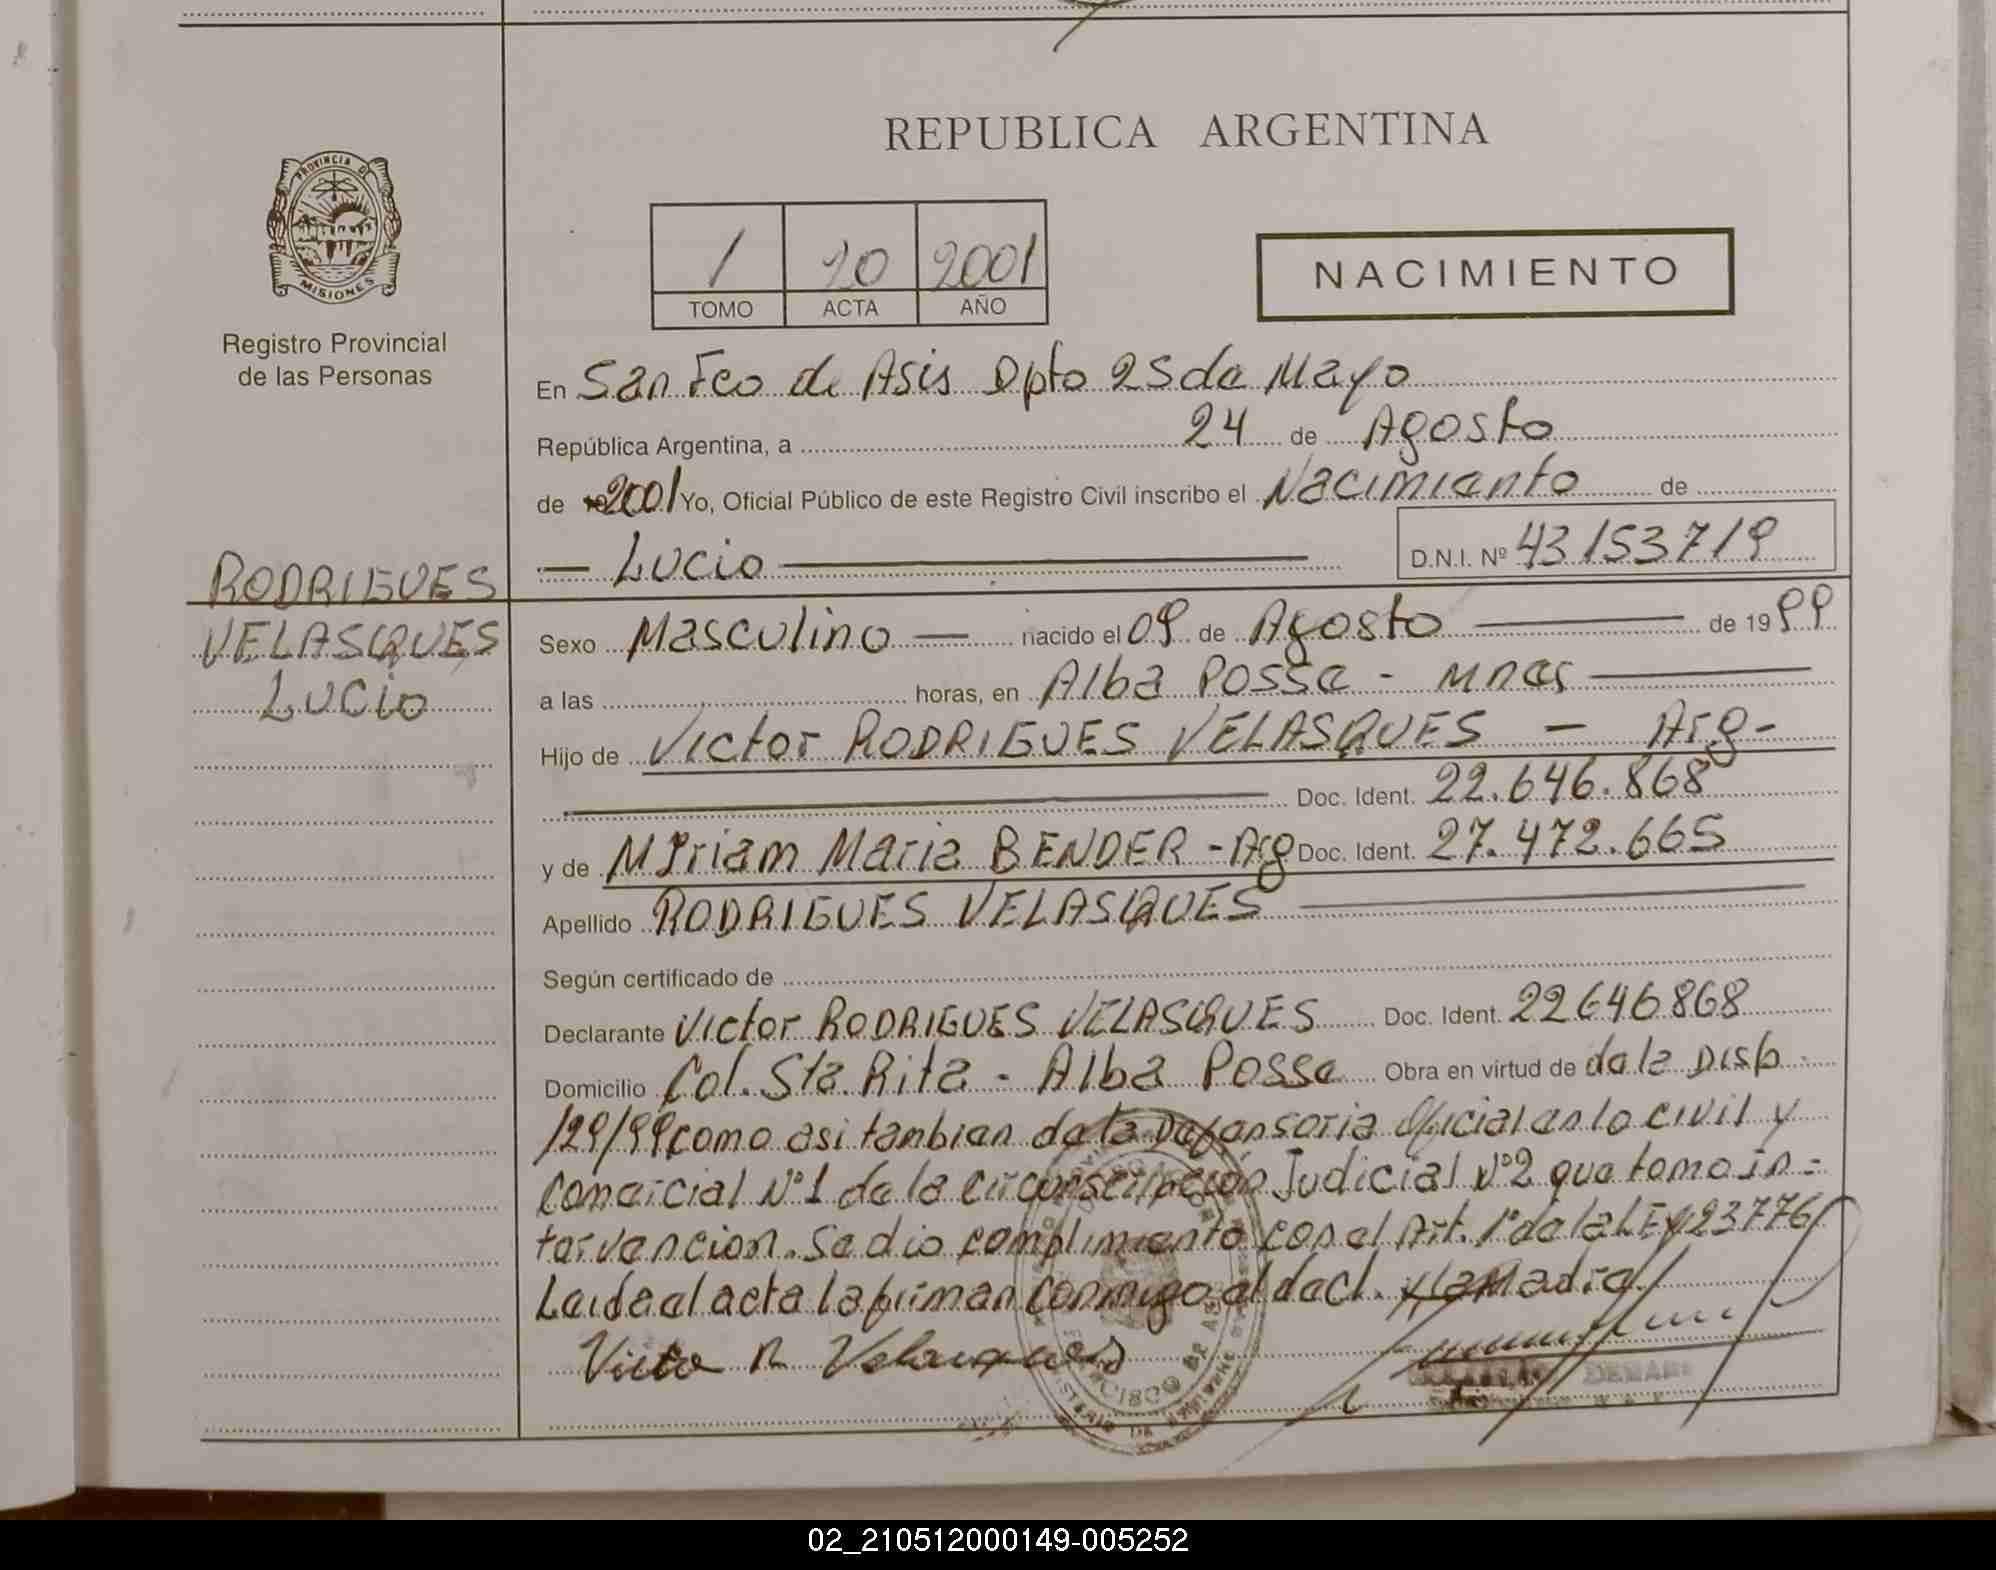 REPUBLICA ARGENTINA
PROVINCIA DE
MISIONES
Registro Provincial
de las Personas
1 20 2001
TOMO ACTA AÑO
NACIMIENTO
En San Fco de Asis Dpto 25 de Mayo
República Argentina, a 24 de Agosto
de 2001 Yo, Oficial Público de este Registro Civil inscribo el Nacimiento de
— Lucio — D.N.I. Nº 43153719
RODRIGUES
VELASQUES
Lucio
Sexo Masculino — nacido el 09 de Agosto — de 1999
a las horas, en Alba Posse - Mnes —
Hijo de Victor RODRIGUES VELASQUES — Arg-
Doc. Ident. 22.646.868
y de Miriam Maria BENDER - Arg Doc. Ident. 27.472.665
Apellido RODRIGUES VELASQUES —
Según certificado de
Declarante Victor RODRIGUES VELASQUES Doc. Ident. 22646868
Domicilio Col. Sta Rita - Alba Posse Obra en virtud de de la Disp.
129/99 como asi tambien de la Defensoria Oficial en lo civil y
Comercial Nº1 de la circunscripción Judicial Nº2 que tomo in-
tervencion. Se dio complimento con el Art. 1º de la LEY 23776
Leida el acta la firman conmigo el decl. y la Madre
Victor R Velasques
02_210512000149-005252